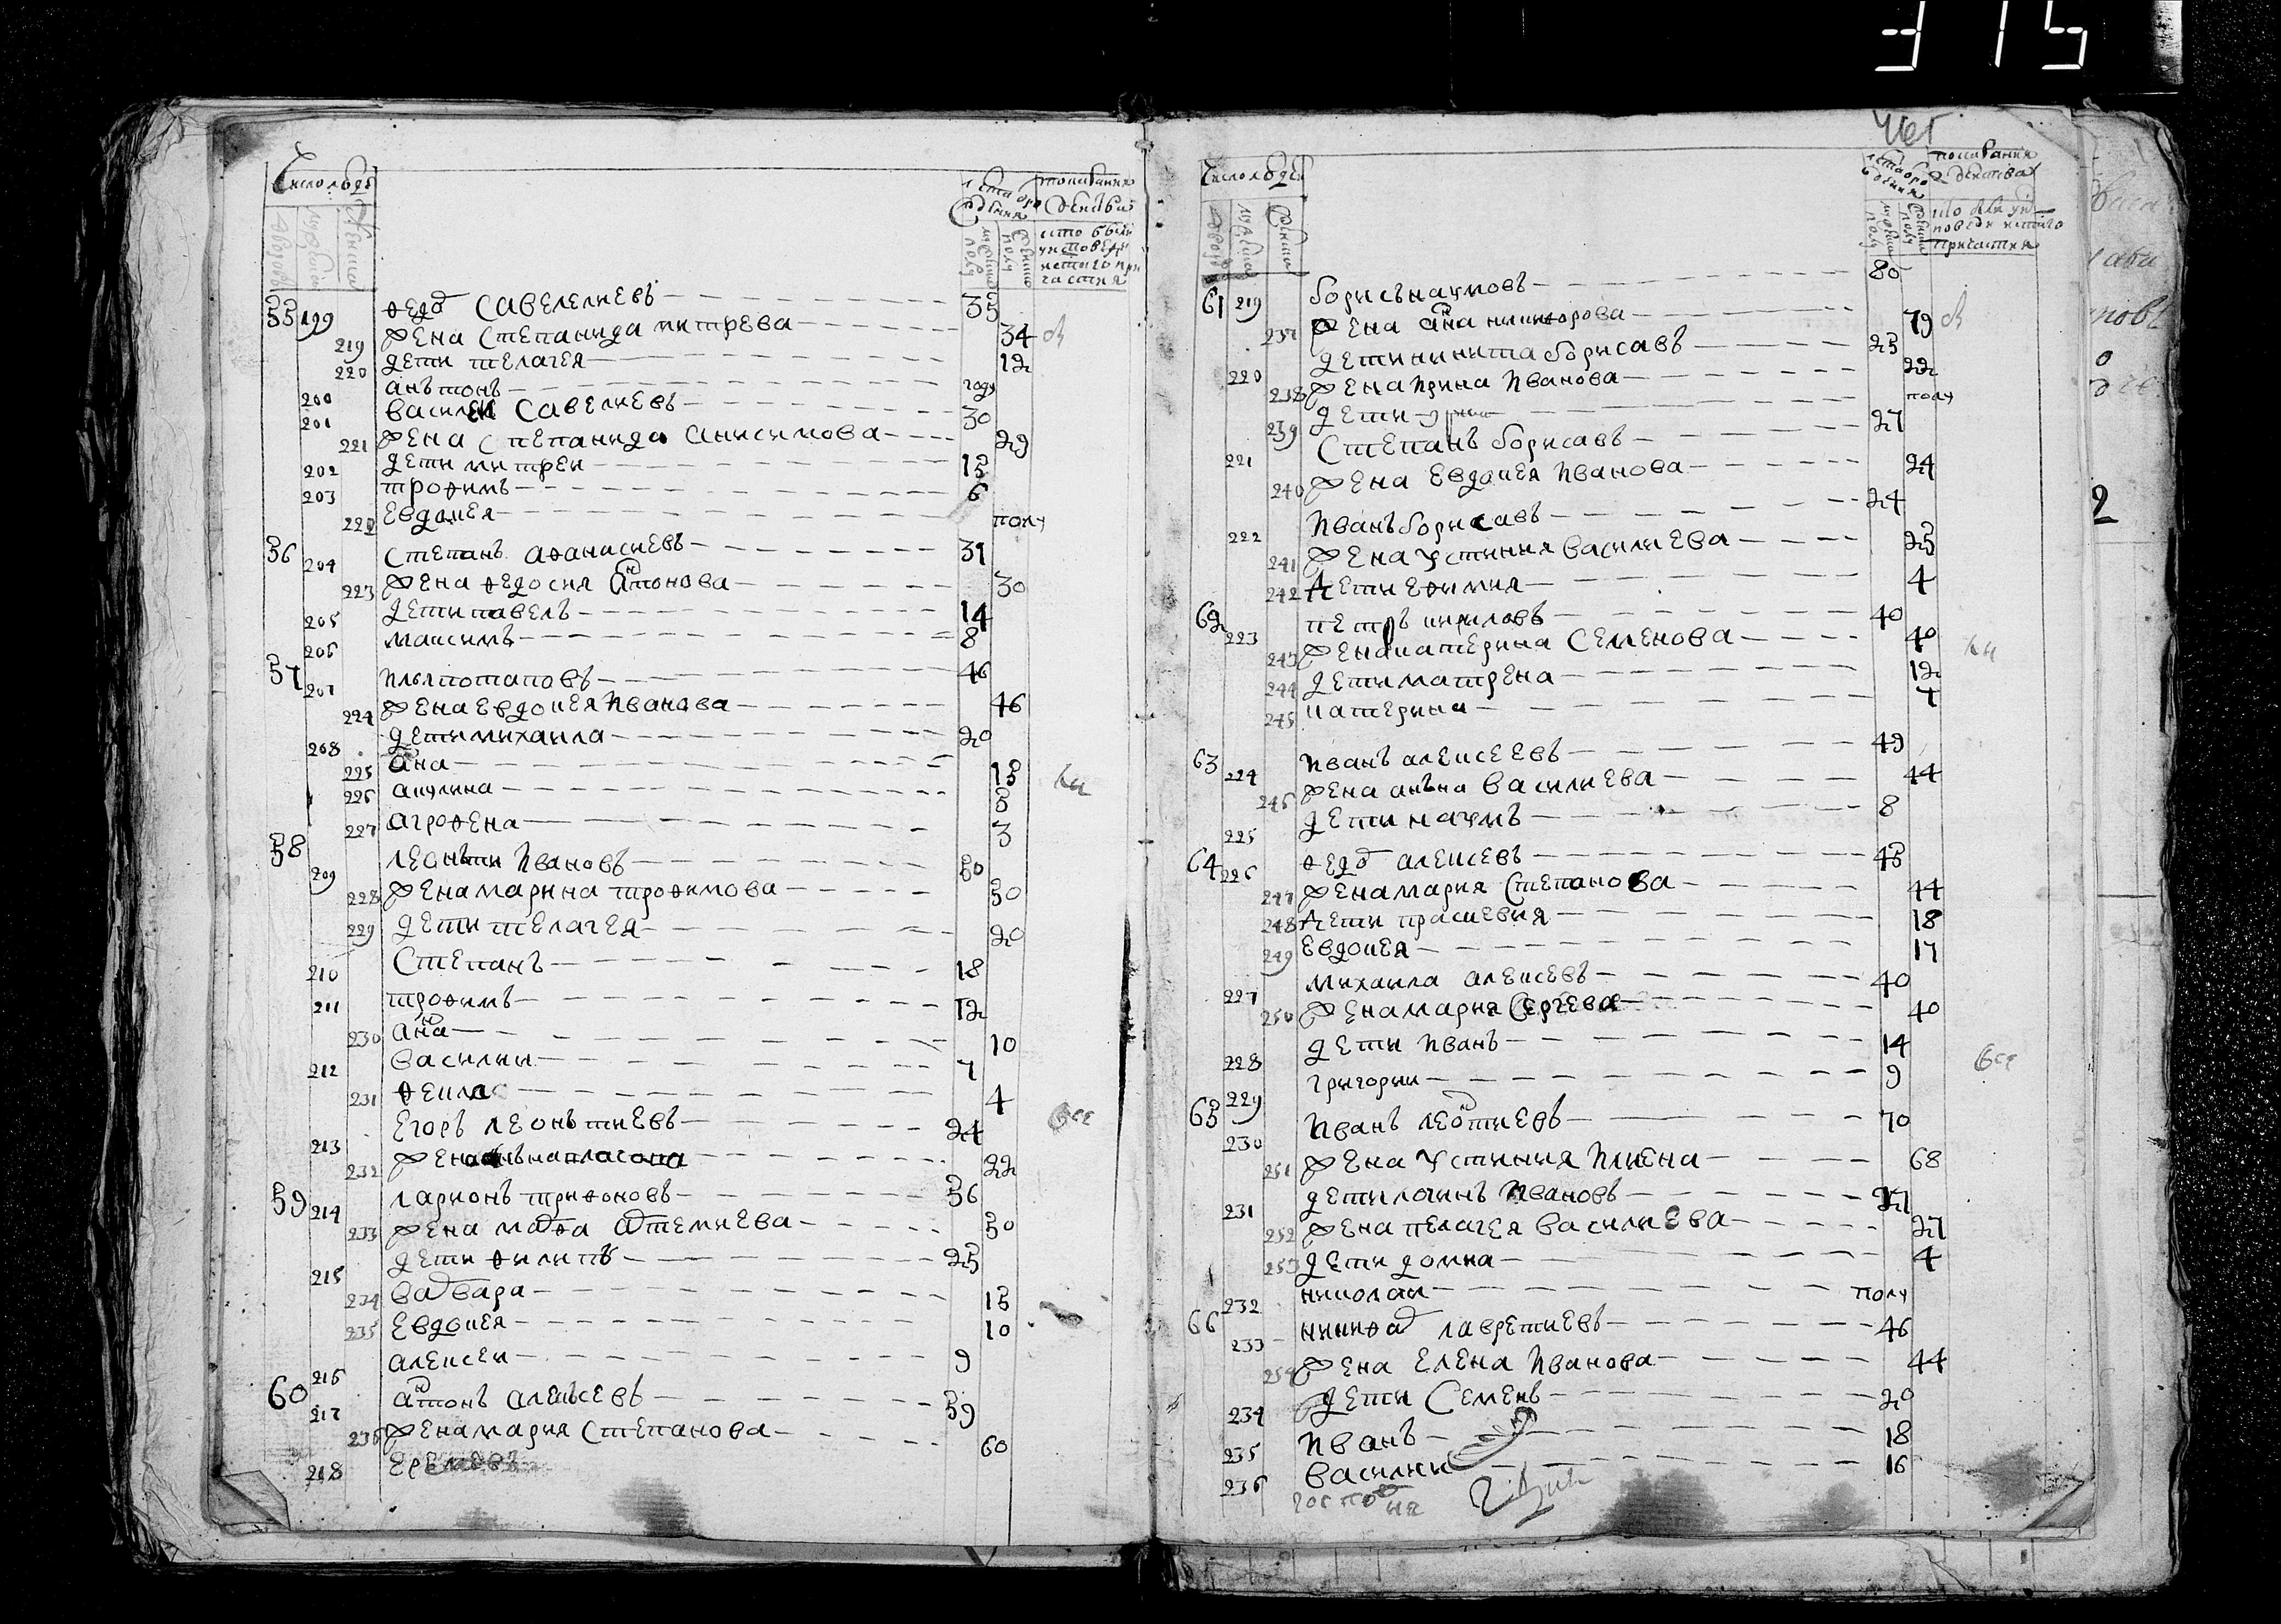 315
Число людѣ
лета от рождения
показания действа
дворовъ
мужска
женска
мужеска полу
женска полу
кто былъ у исповеди и с̑таго причастия
55 199 Ѳедо͏р Савелелиевъ 35
219 жена Степанида митрева 34
220 дети пелагея 12
200 анътонъ году
201 василеи Савелиевъ 30
221 жена Степанида Анисимова 29
202 дети митреи 15
203 троѳимъ 6
222 Евдокея полу
56 204 Степанъ аѳанасиевъ 31
223 жена ѳедосия Антонова 30
205 дети павелъ 14
206 максимъ 8
57 207 Илья потаповъ 46
224 жена Евдокея Иванова 46
208 дети михаила 20
225 ана 15
226 акулина 8
227 агроѳена 3
58 209 леонти Ивановъ 50
228 жена марина троѳимова 50
229 дети пелагея 20
210 Степанъ 18
211 троѳимъ 12
230 анна 10
212 василии 7
231 ѳекла 4
213 Егоръ леонътиевъ 24
232 жена 22
59 214 ларионъ триѳоновъ 56
233 жена марѳа артемиева 50
215 дети ѳилипъ 25
234 варвара 15
235 Евдокея 10
216 алексеи 9
60 217 антонъ алексевъ 59
236 жена мария Степанова 60
218
Число людеи
лета от рождения
показания действа
дворовъ
мужска
женска
мужеска полу
женска полу
кто были у исповеди и с̑таго причастия
61 219 борисъ наумовъ 80
237 жена анна никиѳорова 79
220 дети никита борисавъ 25
238 жена Ирина Иванова 22
239 дети полу
221 Степанъ борисавъ 27
240 жена Евдокея Иванова 24
222 Иванъ борисавъ 24
241 жена Устиния василиева 25
242 дети еѳимия 4
62 223 петръ кириловъ 40
243 жена катерина Семенова 40
244 дети матрена 12
245 катерина 7
63 224 Иванъ алексеевъ 49
246 жена анъна василиева 44
225 дети наумъ 8
64 226 ѳедор алексевъ 45
247 жена мария Степанова 44
248 дети прасковия 18
249 Евдокея 17
227 михаила алексевъ 40
250 жена мария Сергева 40
228 дети Иванъ 14
229 григории 9
65 230 Иванъ леонтиевъ 70
251 жена Устиния 68
231 дети логинъ Ивановъ 27
252 жена пелагея василиева 27
253 дети домна 4
232 николаи полу
66 233 никиѳар лавретиевъ 46
254 жена Елена Иванова 44
234 дети Семенъ 20
235 Иванъ 18
236 василии 16